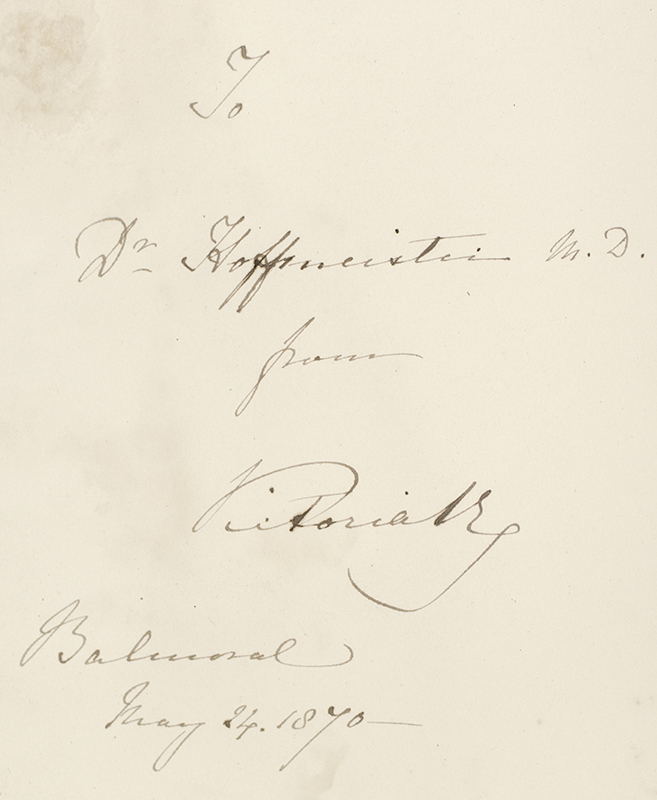 To
Dr Hoffmeister M.D.
from
Victoria R
Balmoral
May 24. 1870